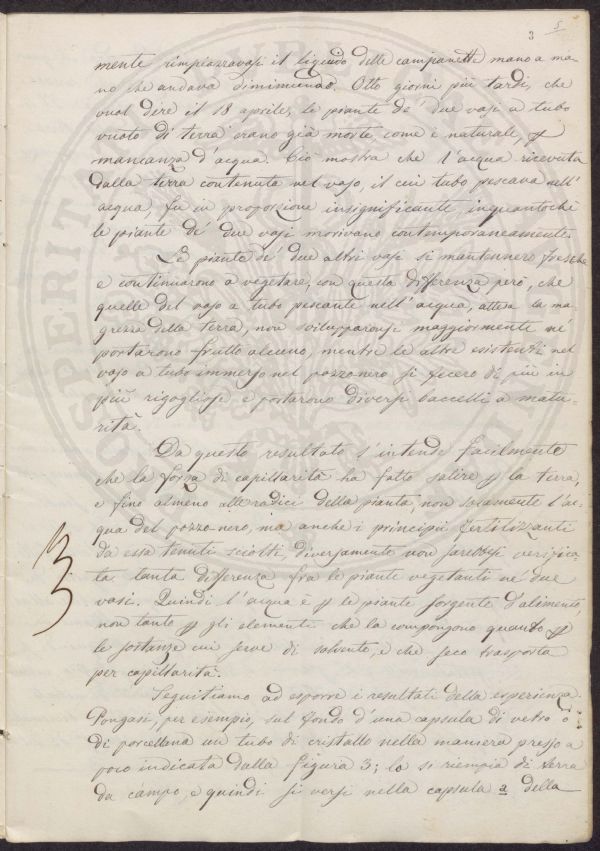 3 5
mente rimpiazzavasi il liquido delle campanette mano a ma-
no che andava diminuendo. Otto giorni più tardi, che
vual dire il 18 aprile, le piante de' due vasi a tubo
vuoto di terra erano già morte, come è naturale, p
mancanza d'acqua. Ciò mostra che l'acqua ricevuta
dalla terra contenuta nel vaso, il cui tubo pescava nell'
acqua, fu in proporzione insignificante, inquantochè
le piante de' due vasi morivano contemporaneamente.
Le piante de' due altri vasi si mantennero fresche
e continuarono a vegetare, con questa differenza però, che
quelle del vaso a tubo pescante nell'acqua, attesa la ma
grezza della terra, non svilupparonsi maggiormente nè
portarono frutto alcuno, mentre le altre esistenti nel
vaso a tubo immerso nel pozzonero si fecero di più in
più rigogliose e portarono diversi baccelli a matu-
rità.
Da questo resultato s'intende facilmente
che la forza di capillarità ha fatto salire p la terra,
e fino almeno alle radici della pianta, non solamente l'ac-
qua del pozzo-nero, ma anche i principii fertilizzanti
da essa tenuti sciolti, diversamente non sarebbesi verifica-
ta tanta differenza fra le piante vegetanti ne' due
vasi. Quindi l'acqua è p le piante sorgente d'alimenti,
non tanto p gli elementi che la compongono quanto p
le sostanze cui serve di solvente, e che seco trasporta
per capillarità.
Seguitiamo ad esporre i resultati della esperienza.
Pongasi, per esempio, sul fondo d'una capsula di vetro o
di porcellana un tubo di cristallo nella maniera presso a
poco indicata dalla figura 3; lo si riempia di terra
da campo, e quindi si versi nella capsula a della